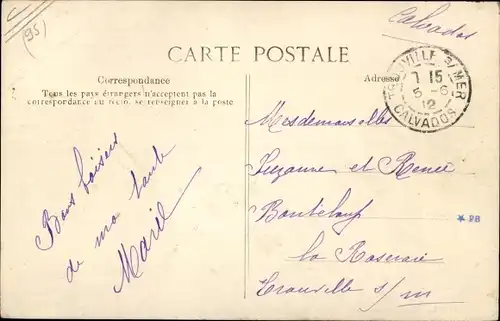 (95)
Calvados
CARTE POSTALE
Correspondance
Tous les pays étrangers n'acceptent pas la
correspondance au recto, se renseigner à la poste
Adresse
TROUVILLE S/MER
7 15
5 -6
12
CALVADOS
Bons baisers
de ma tante
Marie
Mesdemoiselles
Suzanne et Renée
Bouteloup
la Roseraie
Trouville s/m
* 28